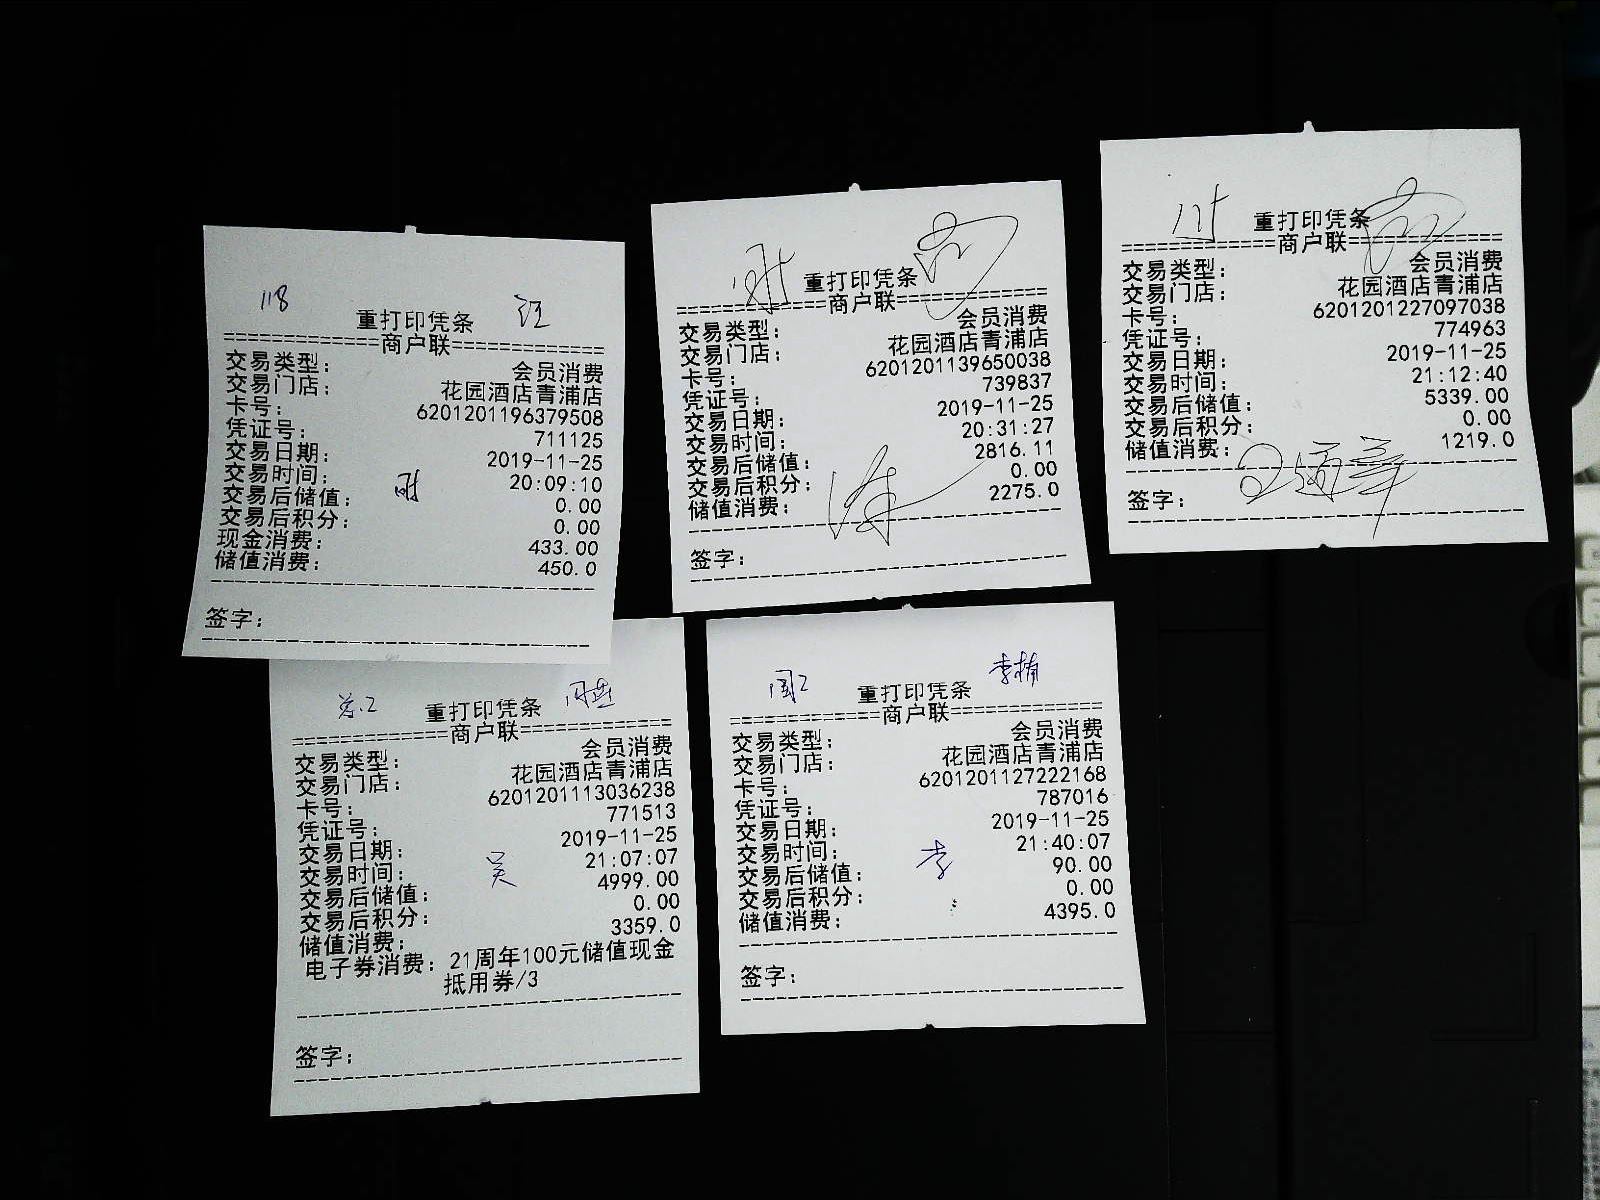 118 汪
重打印凭条
============商户联============
交易类型: 会员消费
交易门店: 花园酒店青浦店
卡号: 6201201196379508
凭证号: 711125
交易日期: 2019-11-25
交易时间: 20:09:10
交易后储值: 0.00
交易后积分: 0.00
现金消费: 433.00
储值消费: 450.0
签字:
重打印凭条
============商户联============
交易类型: 会员消费
交易门店: 花园酒店青浦店
卡号: 6201201139650038
凭证号: 739837
交易日期: 2019-11-25
交易时间: 20:31:27
交易后储值: 2816.11
交易后积分: 0.00
储值消费: 2275.0
签字:
重打印凭条
============商户联============
交易类型: 会员消费
交易门店: 花园酒店青浦店
卡号: 6201201227097038
凭证号: 774963
交易日期: 2019-11-25
交易时间: 21:12:40
交易后储值: 5339.00
交易后积分: 0.00
储值消费: 1219.0
签字:
重打印凭条
============商户联============
交易类型: 会员消费
交易门店: 花园酒店青浦店
卡号: 6201201113036238
凭证号: 771513
交易日期: 2019-11-25
交易时间: 21:07:07
吴
交易后储值: 4999.00
交易后积分: 0.00
储值消费: 3359.0
电子券消费: 21周年100元储值现金
抵用券/3
签字:
重打印凭条
============商户联============
交易类型: 会员消费
交易门店: 花园酒店青浦店
卡号: 6201201127222168
凭证号: 787016
交易日期: 2019-11-25
交易时间: 21:40:07
李
交易后储值: 90.00
交易后积分: 0.00
储值消费: 4395.0
签字: